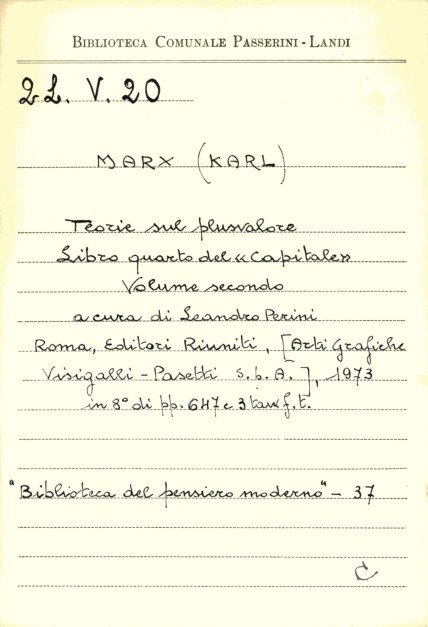 BIBLIOTECA COMUNALE PASSERINI - LANDI
2L. V. 20
MARX (KARL)
Teorie sul plusvalore
Libro quarto del «Capitale»
Volume secondo
a cura di Leandro Perini
Roma, Editori Riuniti, [Arti Grafiche
Visigalli - Pasetti S.p.A.], 1973
in 8° di pp. 647 e 3 tav. f.t.
"Biblioteca del pensiero moderno" - 37
C